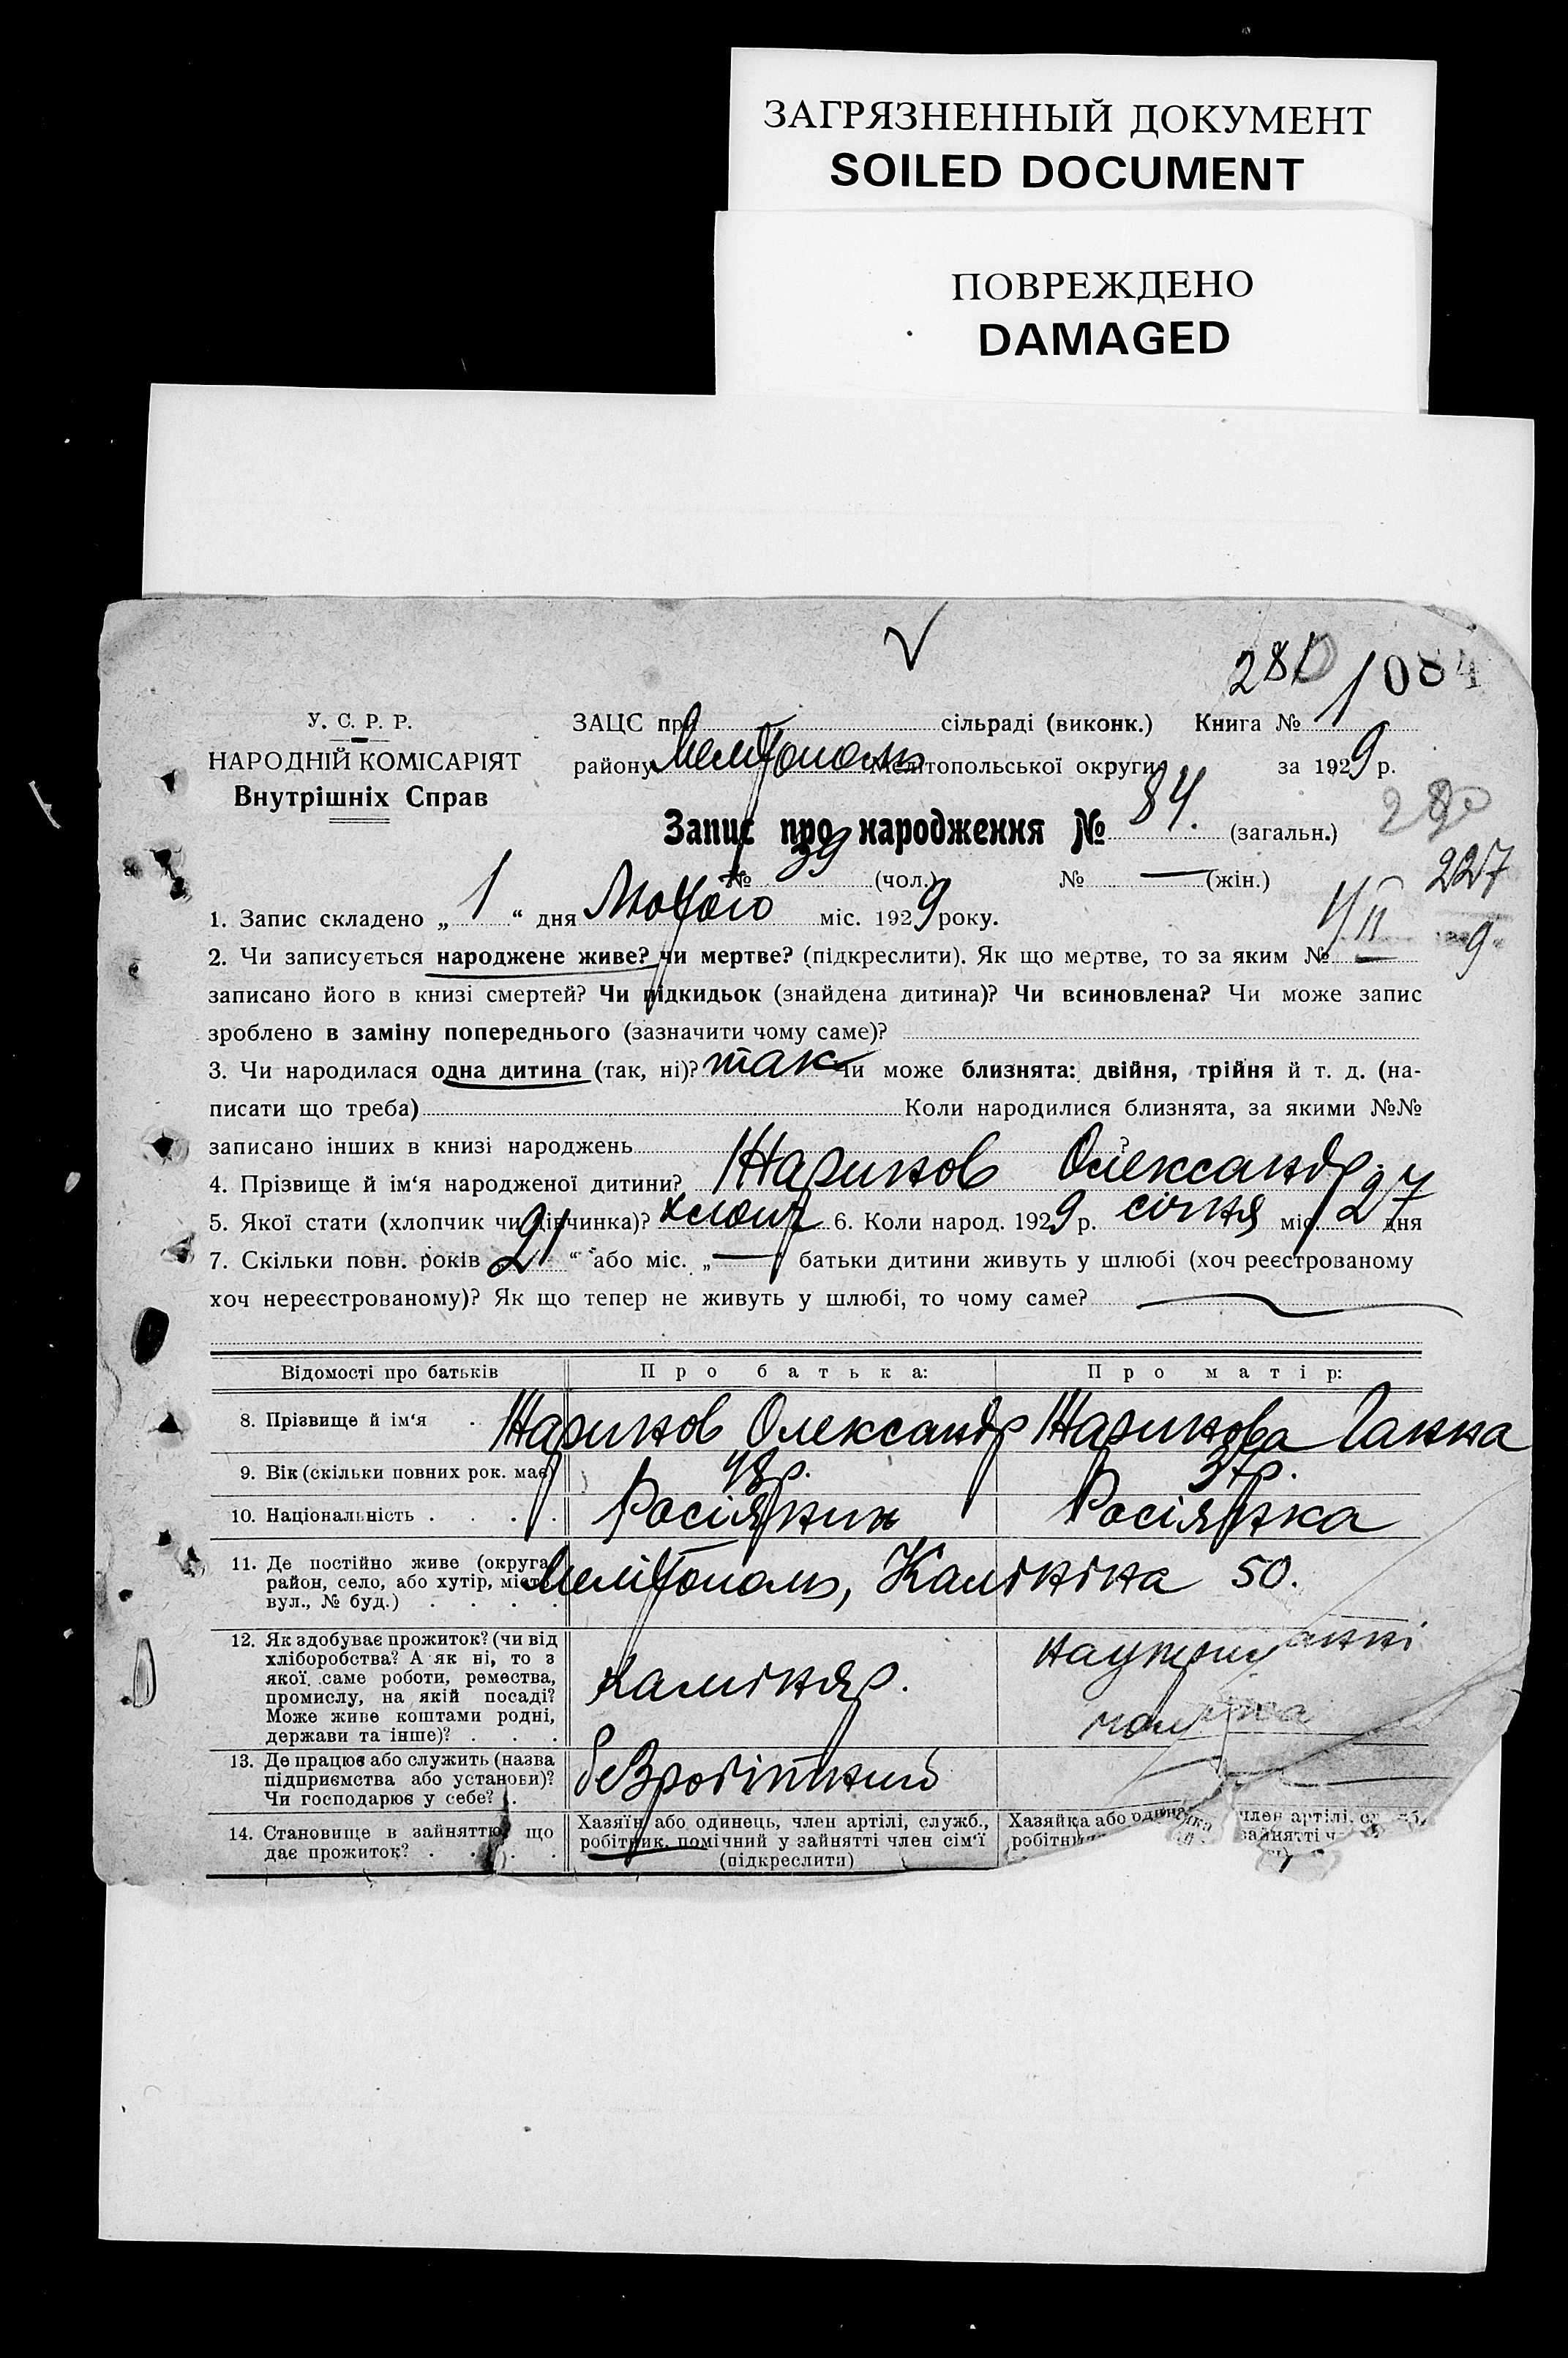 ЗАГРЯЗНЕННЫЙ ДОКУМЕНТ
SOILED DOCUMENT
ПОВРЕЖДЕНО
DAMAGED
1084
У. С. Р. Р.
НАРОДНІЙ КОМІСАРІЯТ
Внутрішніх Справ
ЗАЦС при сільраді (виконк.) Книга № 1
району Мелітополь Мелітопольської округи за 1929 р.
Запис про народження № 84. (загальн.)
№ 39 (чол.) № — (жін.)
227
9
1. Запис складено „ 1 “ дня Лютого міс. 1929 року.
2. Чи записується народжене живе? чи мертве? (підкреслити). Як що мертве, то за яким № —
записано його в книзі смертей? Чи підкидьок (знайдена дитина)? Чи всиновлена? Чи може запис
зроблено в заміну попереднього (зазначити чому саме)?
3. Чи народилася одна дитина (так, ні)? так Чи може близнята: двійня, трійня й т. д. (на-
писати що треба) Коли народилися близнята, за якими №№
записано інших в книзі народжень ?
4. Прізвище й ім‘я народженої дитини? Жариков Олександр
5. Якої стати (хлопчик чи дівчинка)? хлопч 6. Коли народ. 1929 р. січня міс. 27 дня
7. Скільки повн. років „ 21 “ або міс. „ — “ батьки дитини живуть у шлюбі (хоч реєстрованому
хоч нереєстрованому)? Як що тепер не живуть у шлюбі, то чому саме? —
Відомості про батьків Про батька: Про матір:
8. Прізвище й ім‘я Жариков Олександр Жарикова Ганна
9. Вік (скільки повних рок. має) 48 р. 37 р.
10. Національність Росіянин Росіянка
11. Де постійно живе (округа, район, село, або хутір, місто, вул., № буд.) Мелітополь, Калініна 50.
12. Як здобуває прожиток? (чи від
хліборобства? А як ні, то з
якої саме роботи, ремества,
промислу, на якій посаді?
Може живе коштами родні,
держави та інше)?
каміняр.
на утриманні
чоловіка
13. Де працює або служить (назва
підприємства або установи)?
Чи господарює у себе?
безробітний —
14. Становище в зайняттю, що
дає прожиток?
Хазяїн або одинець, член артілі, служб.,
робітник, помічний у зайнятті член сім‘ї
(підкреслити)
Хазяйка або одиначка член артілі, служб.,
робітни зайнятті ч